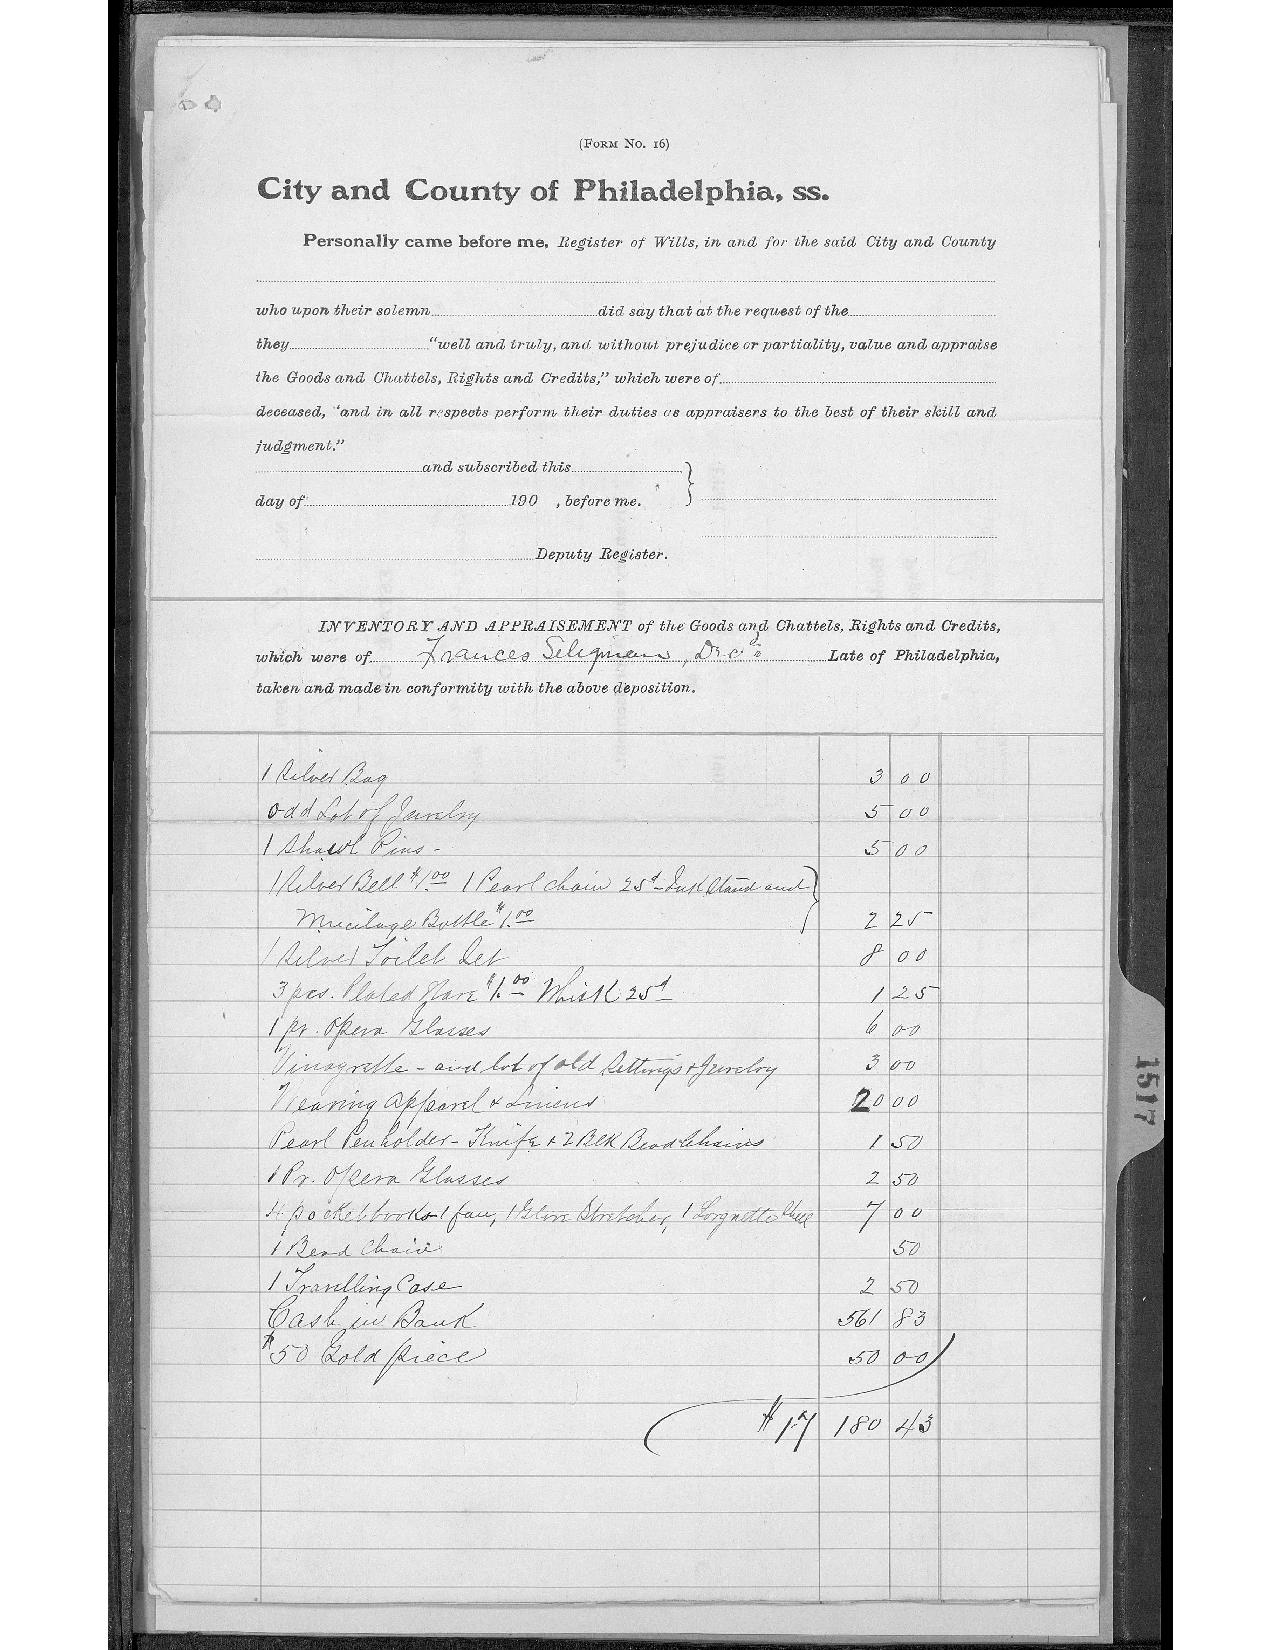 (FORM NO. 16)
City and County of Philadelphia, ss.
Personally came before me, Register of Wills, in and for the said City and County
who upon their solemn did say that at the request of the
they "well and truly, and without prejudice or partiality, value and appraise
the Goods and Chattels, Rights and Credits," which were of
deceased, "and in all respects perform their duties as appraisers to the best of their skill and
judgment."
and subscribed this
day of 190 , before me.
Deputy Register.
INVENTORY AND APPRAISEMENT of the Goods and Chattels, Rights and Credits,
which were of Frances Seligman, Dec'd Late of Philadelphia,
taken and made in conformity with the above deposition.
1 Silver Bag 3 00
odd Lot of Jewelry 5 00
1 Shawl Pins - 5 00
1 Silver Bell $1.00 1 Pearl chain 25¢ - Ink Stand and
Mucilage Bottle $1.00 2 25
1 Silver Toilet Set 8 00
3 pcs. Plated Ware $1.00 Whisk 25¢ 1 25
1 pr. Opera Glasses 6 00
Vinagrette - and lot of old Settings & Jewelry 3 00
Wearing Apparel & Linens 20 00
Pearl Penholder - Knife & 2 Blk Bead Chains 1 50
1 Pr. Opera Glasses 2 50
4 pocketbooks 1 fan, 1 Glove Stretcher, 1 Lorgnette 7 00
1 Bead Chain 50
1 Travelling Case 2 50
Cash in Bank 561 83
$50 Gold piece 50 00
$17 180 43
1517